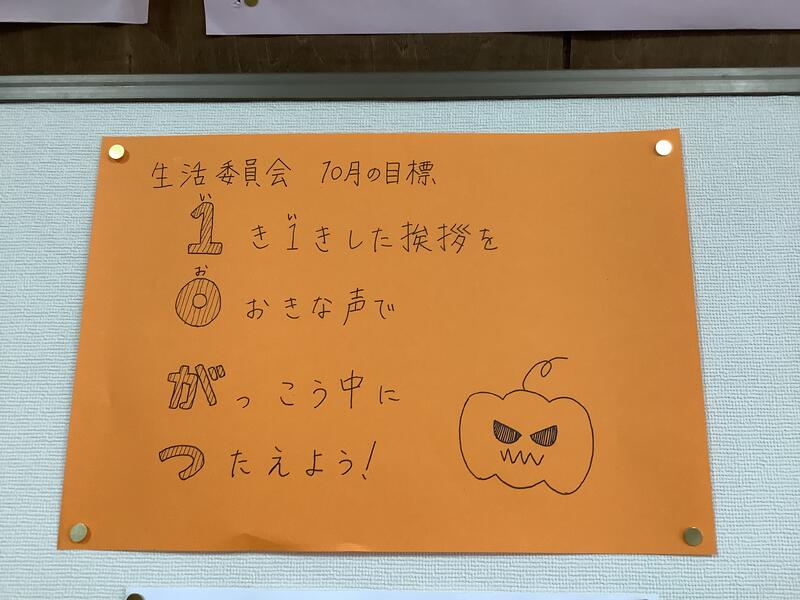 生活委員会 10月の目標
い い
1き1きした挨拶を
お
0おきな声で
がっこう中に
つたえよう!